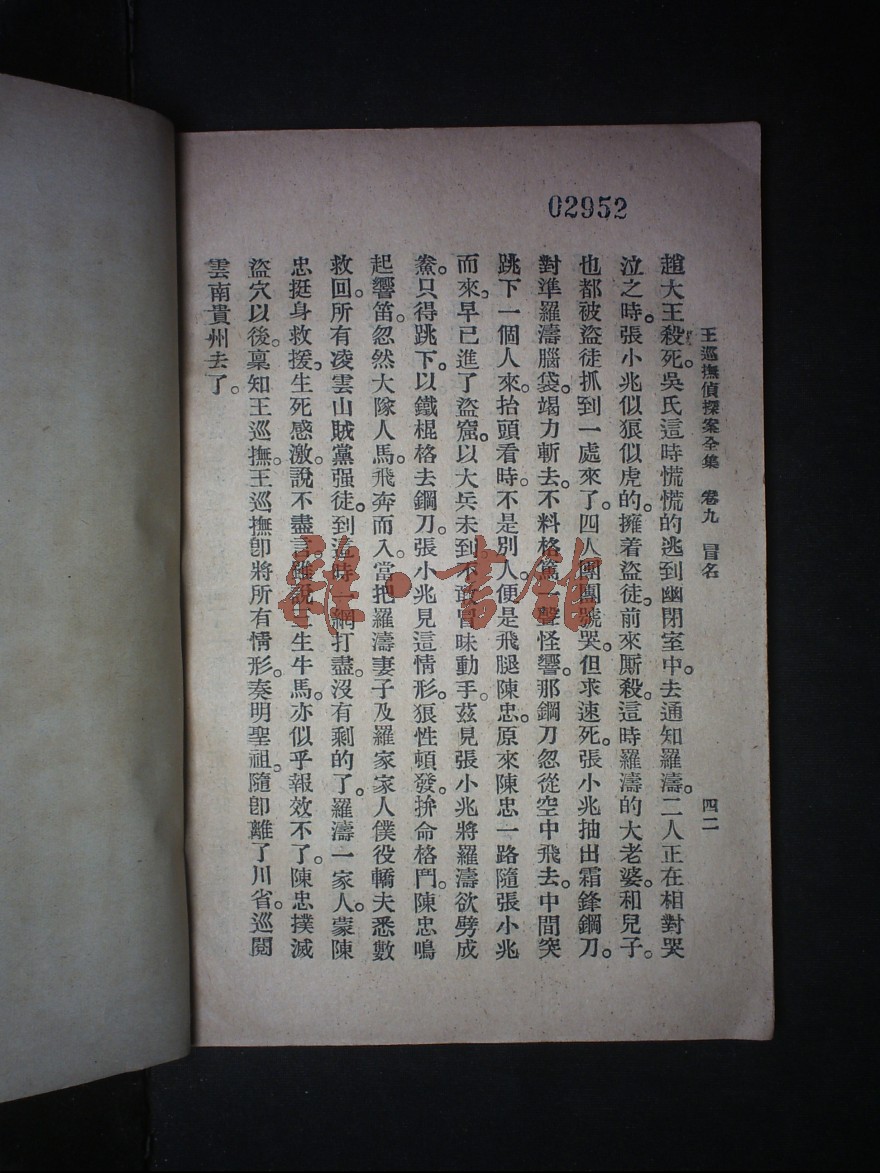 02952
王巡撫偵探案全集 卷九 冒名 四二
趙大王殺死。吳氏這時慌慌的逃到幽閉室中。去通知羅濤。二人正在相對哭
泣之時。張小兆似狼似虎的。擁着盜徒。前來厮殺。這時羅濤的大老婆。和兒子。
也都被盜徒抓到一處來了。四人團團號哭。但求速死。張小兆抽出霜鋒鋼刀。
對準羅濤腦袋。竭力斬去。不料格篤一聲怪響。那鋼刀忽從空中飛去。中間突
跳下一個人來。抬頭看時。不是別人。便是飛腿陳忠。原來陳忠一路隨張小兆
而來。早已進了盜窟。以大兵未到。不敢冒昧動手。茲見張小兆將羅濤欲劈成
鯗。只得跳下。以鐵棍格去鋼刀。張小兆見這情形。狼性頓發。拚命格鬥。陳忠鳴
起響笛。忽然大隊人馬。飛奔而入。當把羅濤妻子及羅家家人僕役轎夫悉數
救回。所有凌雲山賊黨强徒。到這時一網打盡。沒有剩的了。羅濤一家人。蒙陳
忠挺身救援。生死感激。說不盡言。雖說十生牛馬。亦似乎報效不了。陳忠撲滅
盜穴以後。稟知王巡撫。王巡撫卽將所有情形。奏明聖祖。隨卽離了川省。巡閱
雲南貴州去了。
雜·書館